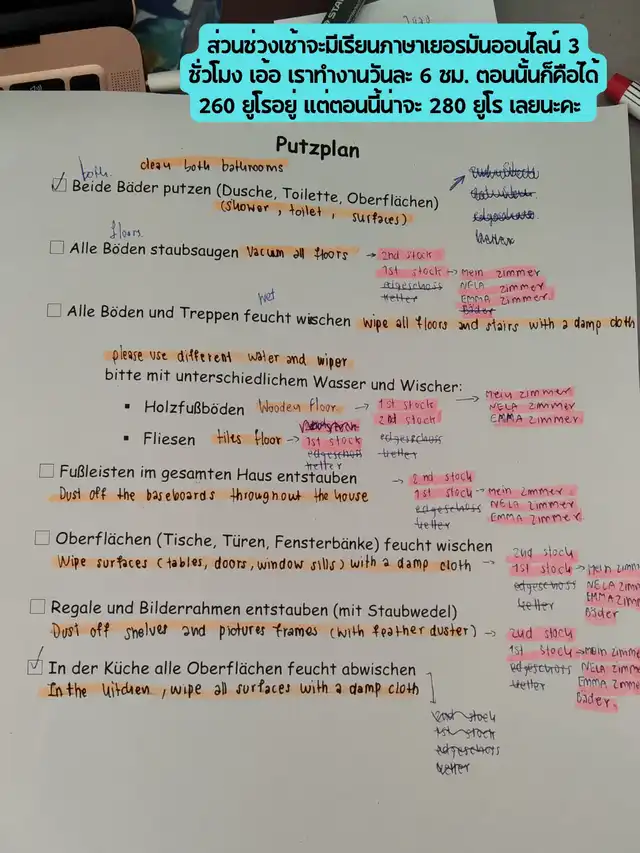 ส่วนช่วงเช้าจะมีเรียนภาษาเยอรมันออนไลน์ 3
ชั่วโมง เอ้อ เราทำงานวันละ 6 ชม. ตอนนั้นก็คือได้
260 ยูโรอยู่ แต่ตอนนี้น่าจะ 280 ยูโร เลยนะคะ
Putzplan
both. clean both bathrooms
Beide Bäder putzen (Dusche, Toilette, Oberflächen)
(shower, toilet, surfaces)
edgeschoss
keller
floors.
Alle Böden staubsaugen vacum all floors → 2nd stock
1st stock → Mein zimmer
edgeschoss NELA zimmer
keller EMMA zimmer
Bäder
wet
Alle Böden und Treppen feucht wischen wipe all floors and stairs with a damp cloth
please use different water and wiper
bitte mit unterschiedlichem Wasser und Wischer:
▪ Holzfußböden Wooden floor → 1st stock → Mein zimmer
2nd stock NELA zimmer
EMMA zimmer
▪ Fliesen tiles floor → 1st stock edgeschoss
edgeschoss keller
keller
Fußleisten im gesamten Haus entstauben → 2nd stock
Dust off the baseboards throughout the house 1st stock → Mein zimmer
edgeschoss NELA zimmer
keller EMMA zimmer
Oberflächen (Tische, Türen, Fensterbänke) feucht wischen 2nd stock
Wipe surfaces (tables, doors, window sills) with a damp cloth → 1st stock → Mein zimm
edgeschoss NELA zim
keller EMMA zim
Bäder
Regale und Bilderrahmen entstauben (mit Staubwedel)
Dust off shelves and pictures frames (with feather duster) → 2nd stock
1st stock → Mein zimm
In der Küche alle Oberflächen feucht abwischen edgeschoss NELA zimm
In the kitchen, wipe all surfaces with a damp cloth keller EMMA zimm
Bäder.
2nd stock
1st stock
edgeschoss
keller